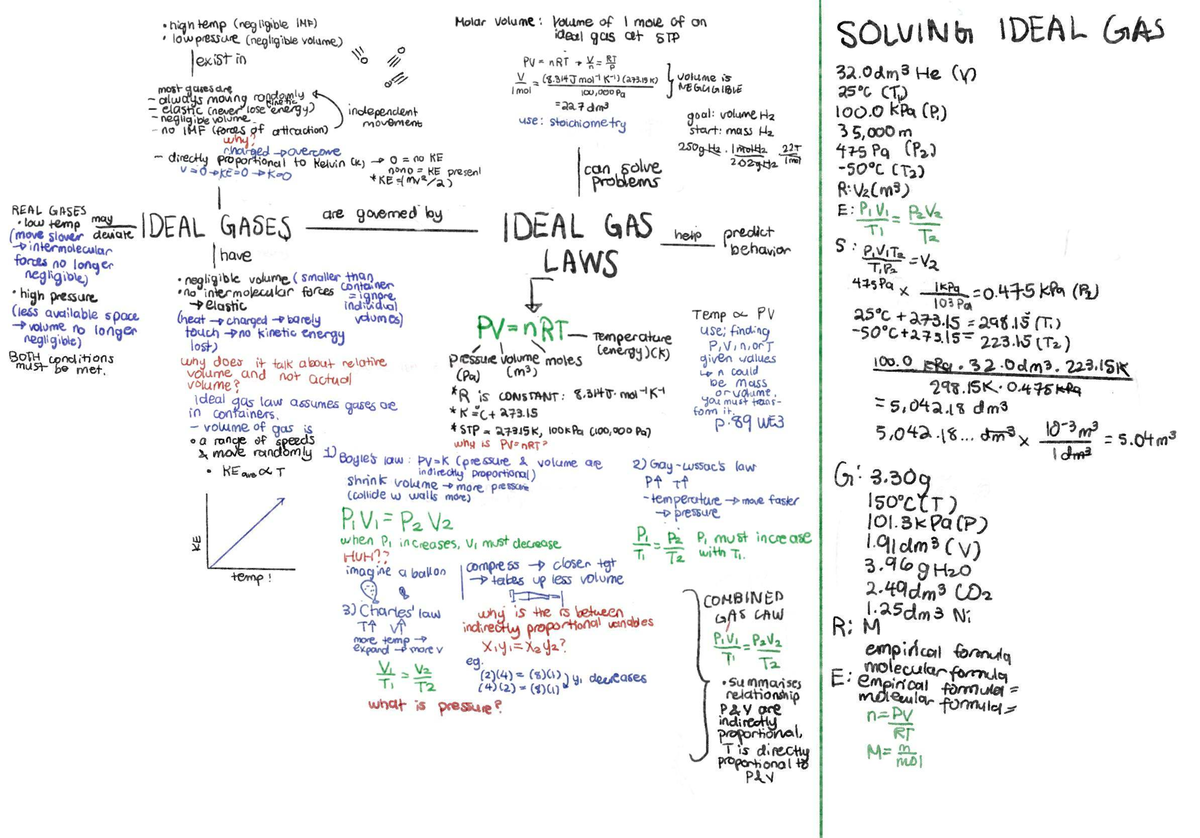 • high temp (negligible IMF)
• low pressure (negligible volume)
exist in
most gases are
- always moving randomly
- elastic (never lose kinetic energy)
- negligible volume
- no IMF (forces of attraction)
independent
movement
why?
charged → overcome
- directly proportional to Kelvin (K) → 0 = no KE
v=0 → KE=0 → K=0
nono = KE present
*KE = (mv²/2)
Molar volume: volume of 1 mole of an
ideal gas at STP
PV = nRT → V/n = RT/P
V/1mol = (8.314J mol⁻¹ K⁻¹)(273.15K)/100,000Pa
= 22.7 dm³
volume is
NEGLIGIBLE
use: stoichiometry
goal: volume H₂
start: mass H₂
250g H₂ · 1molH₂/2.02gH₂
can solve
problems
REAL GASES
• low temp
(move slower
→ intermolecular
forces no longer
negligible)
• high pressure
(less available space
→ volume no longer
negligible)
BOTH conditions
must be met.
may
deviate
IDEAL GASES
are governed by
IDEAL GAS
LAWS
help
predict
behavior
have
• negligible volume (smaller than
container
= ignore
individual
volumes)
• no intermolecular forces
→ elastic
(heat → charged → barely
touch → no kinetic energy
lost)
why does it talk about relative
volume and not actual
volume?
Ideal gas law assumes gases are
in containers.
- volume of gas is
• a range of speeds
& move randomly
• KE ave ∝ T
KE
temp!
PV = nRT
Temperature
(energy)(K)
pressure volume moles
(Pa) (m³)
*R is CONSTANT: 8.314J·mol⁻¹K⁻¹
*K = °C + 273.15
*STP = 273.15K, 100kPa (100,000 Pa)
why is PV=nRT?
Temp ∝ PV
use; finding
P, V, n, or T
given values
↳ n could
be mass
or volume.
you must trans-
form it.
p.89 WE3
1) Boyle's law: PV=K (pressure & volume are
indirectly proportional)
shrink volume → more pressure
(collide w walls more)
P₁V₁ = P₂V₂
when P₁ increases, V₁ must decrease
HUH??
imagine a ballon
compress → closer tgt
→ takes up less volume
2) Gay-Lussac's law
P↑ T↑
- temperature → move faster
→ pressure
P₁/T₁ = P₂/T₂ P₁ must increase
with T₁.
3) Charles' law
T↑ V↑
more temp →
expand → more v
V₁/T₁ = V₂/T₂
why is the rs between
indirectly proportional variables
x₁y₁ = x₂y₂?
eg.
(2)(4) = (8)(1)
(4)(2) = (8)(1)
y₁ decreases
what is pressure?
COMBINED
GAS LAW
P₁V₁/T₁ = P₂V₂/T₂
• summarises
relationship
P&V are
indirectly
proportional,
T is directly
proportional to
P&V
SOLVING IDEAL GAS
32.0dm³ He (V)
25°C (T₁)
100.0 kPa (P₁)
35,000m
475 Pa (P₂)
-50°C (T₂)
R: V₂(m³)
E: P₁V₁/T₁ = P₂V₂/T₂
S: P₁V₁T₂/T₁P₂ = V₂
475Pa × 1kPa/10³Pa = 0.475 kPa (P₂)
25°C + 273.15 = 298.15 (T₁)
-50°C + 273.15 = 223.15 (T₂)
100.0 kPa · 32.0dm³ · 223.15K
298.15K · 0.475 kPa
= 5,042.18 dm³
5,042.18... dm³ × 10⁻³m³/1dm³ = 5.04m³
G: 3.30g
150°C (T)
101.3kPa (P)
1.91dm³ (V)
3.96g H₂O
2.49dm³ CO₂
1.25dm³ Ni
R: M
empirical formula
molecular formula
E: empirical formula =
molecular formula =
n = PV/RT
M = m/mol